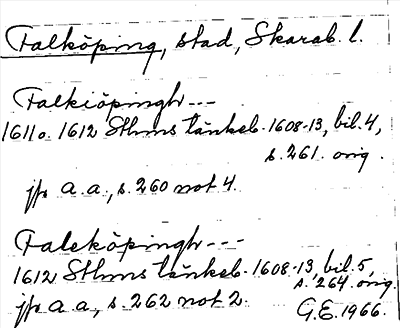 Falköping, stad, Skarab. l.
Falkiöpingh---
1611 o. 1612 Sthms tänkeb. 1608-13, bil. 4,
s. 261. orig.
jfr a.a., s. 260 not 4.
Faleköpingh---
1612 Sthms tänkeb. 1608-13, bil. 5,
s. 264. orig.
jfr a.a., s. 262 not 2.
G.E. 1966.